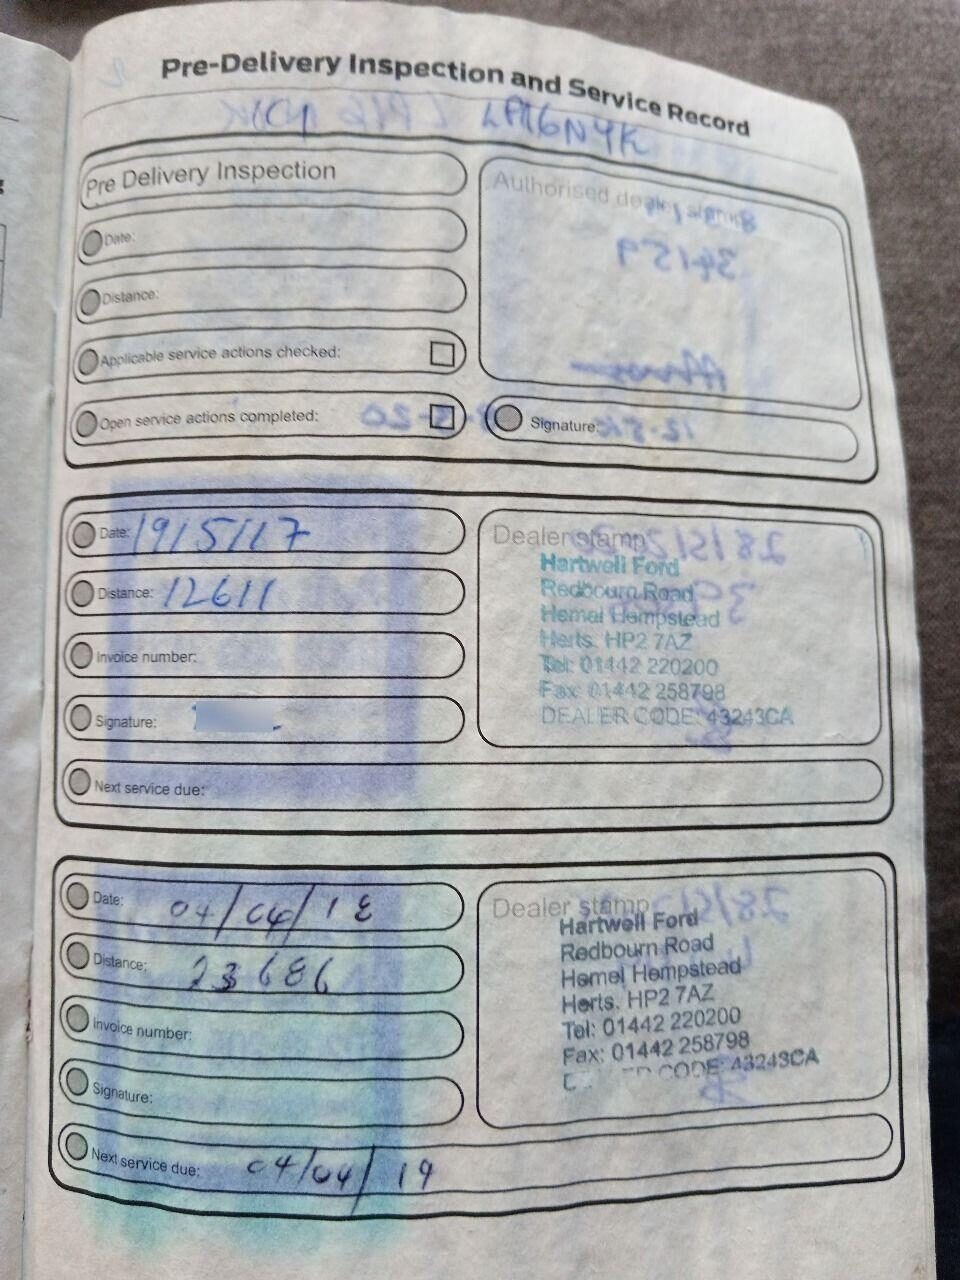 Pre-Delivery Inspection and Service Record
LP16NYK
Pre Delivery Inspection
Date:
Distance:
Applicable service actions checked:
Open service actions completed:
Authorised dealer
Signature:
Date: 19/5/17
Distance: 12611
Invoice number:
Signature:
Next service due:
Dealer stamp
Hartwell Ford
Redbourn Road
Hemel Hempstead
Herts. HP2 7AZ
Tel: 01442 220200
Fax: 01442 258798
DEALER CODE: 43243CA
Date: 04/04/18
Distance: 23686
Invoice number:
Signature:
Next service due: 04/04/19
Dealer stamp
Hartwell Ford
Redbourn Road
Hemel Hempstead
Herts. HP2 7AZ
Tel: 01442 220200
Fax: 01442 258798
CODE: 43243CA